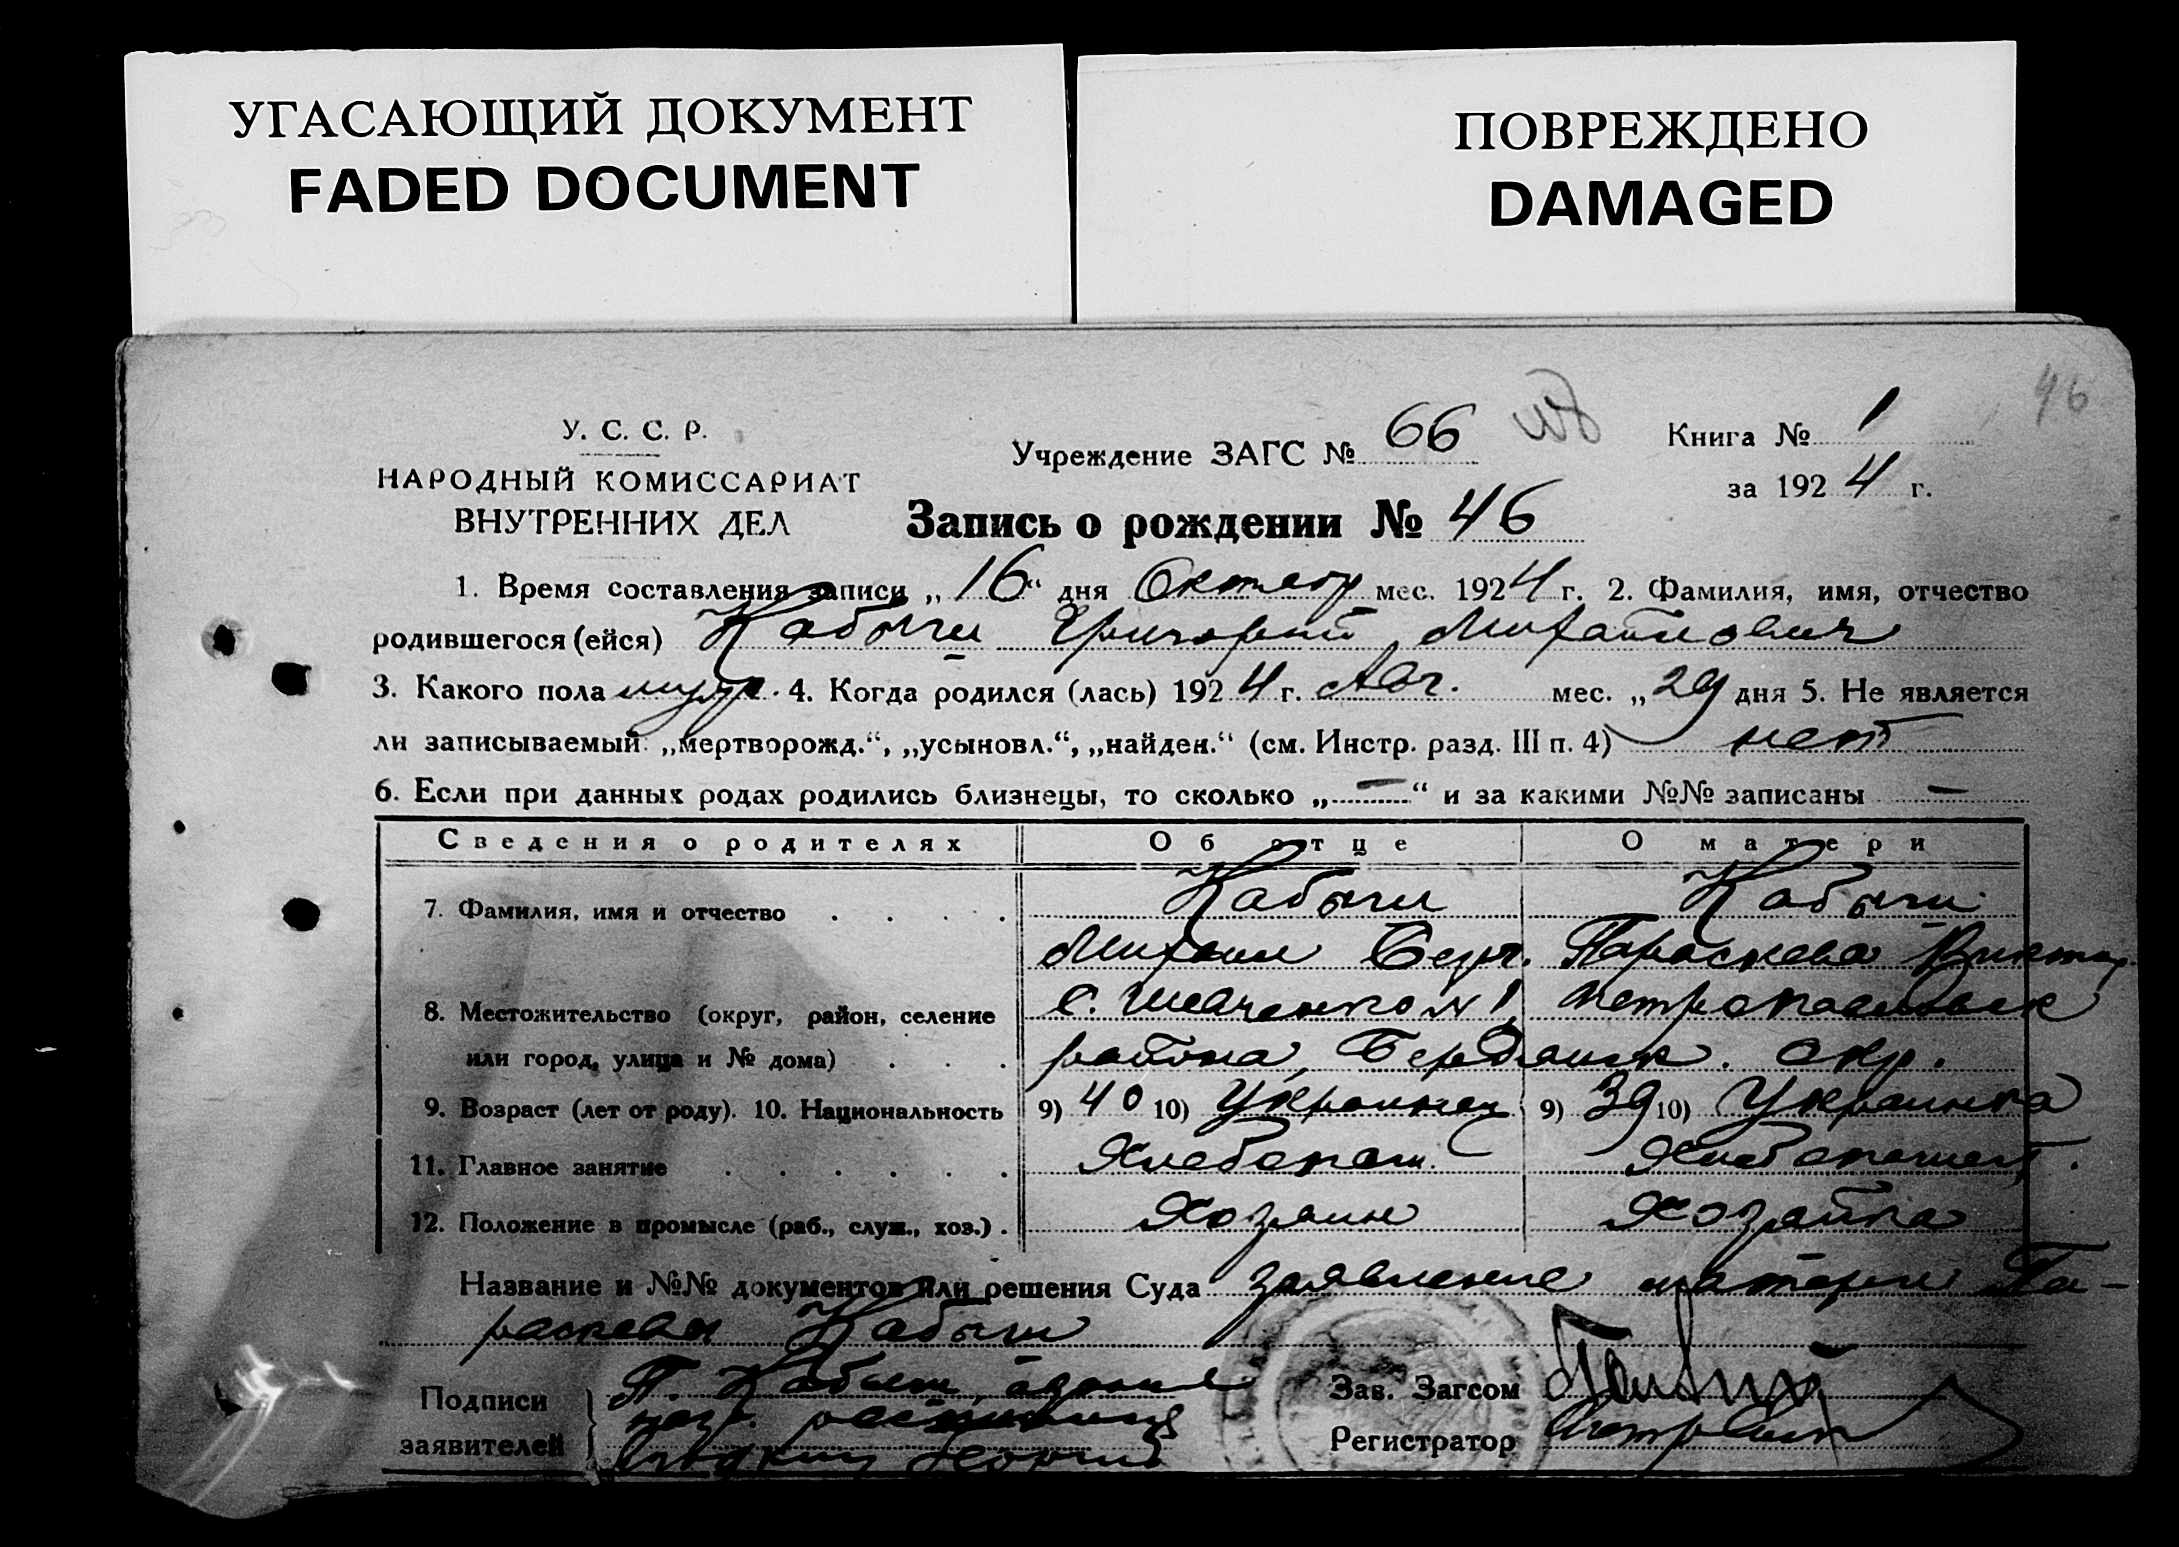 УГАСАЮЩИЙ ДОКУМЕНТ
FADED DOCUMENT
ПОВРЕЖДЕНО
DAMAGED
46
У. С. С. Р.
НАРОДНЫЙ КОМИССАРИАТ
ВНУТРЕННИХ ДЕЛ
Учреждение ЗАГС № 66
Книга № 1
за 1924 г.
Запись о рождении № 46
1. Время составления записи „16“ дня Октябр мес. 1924 г. 2. Фамилия, имя, отчество
родившегося (ейся) Кабыш Григорий Михайлович
3. Какого пола муж. 4. Когда родился (лась) 1924 г. Авг. мес. „29 дня 5. Не является
ли записываемый: „мертворожд.“, „усыновл.“, „найден.“ (см. Инстр. разд. III п. 4) нет
6. Если при данных родах родились близнецы, то сколько „—“ и за какими №№ записаны —
Сведения о родителях Об отце О матери
7. Фамилия, имя и отчество Кабыш Кабыш
Михаил Серг. Параскева Виктор
8. Местожительство (округ, район, селение с. Шевченко № 1, Петропавловск
или город, улица и № дома) района, Бердянск. окр.
9. Возраст (лет от роду). 10. Национальность 9) 40 10) Украинец 9) 39 10) Украинка
11. Главное занятие Хлебопаш. Хлебопашест.
12. Положение в промысле (раб., служ., хоз.) Хозяин Хозяйка
Название и №№ документов или решения Суда заявление матери Па-
раскевы Кабыш
Подписи П. Кабыш, а за
заявителей
Зав. Загсом
Регистратор